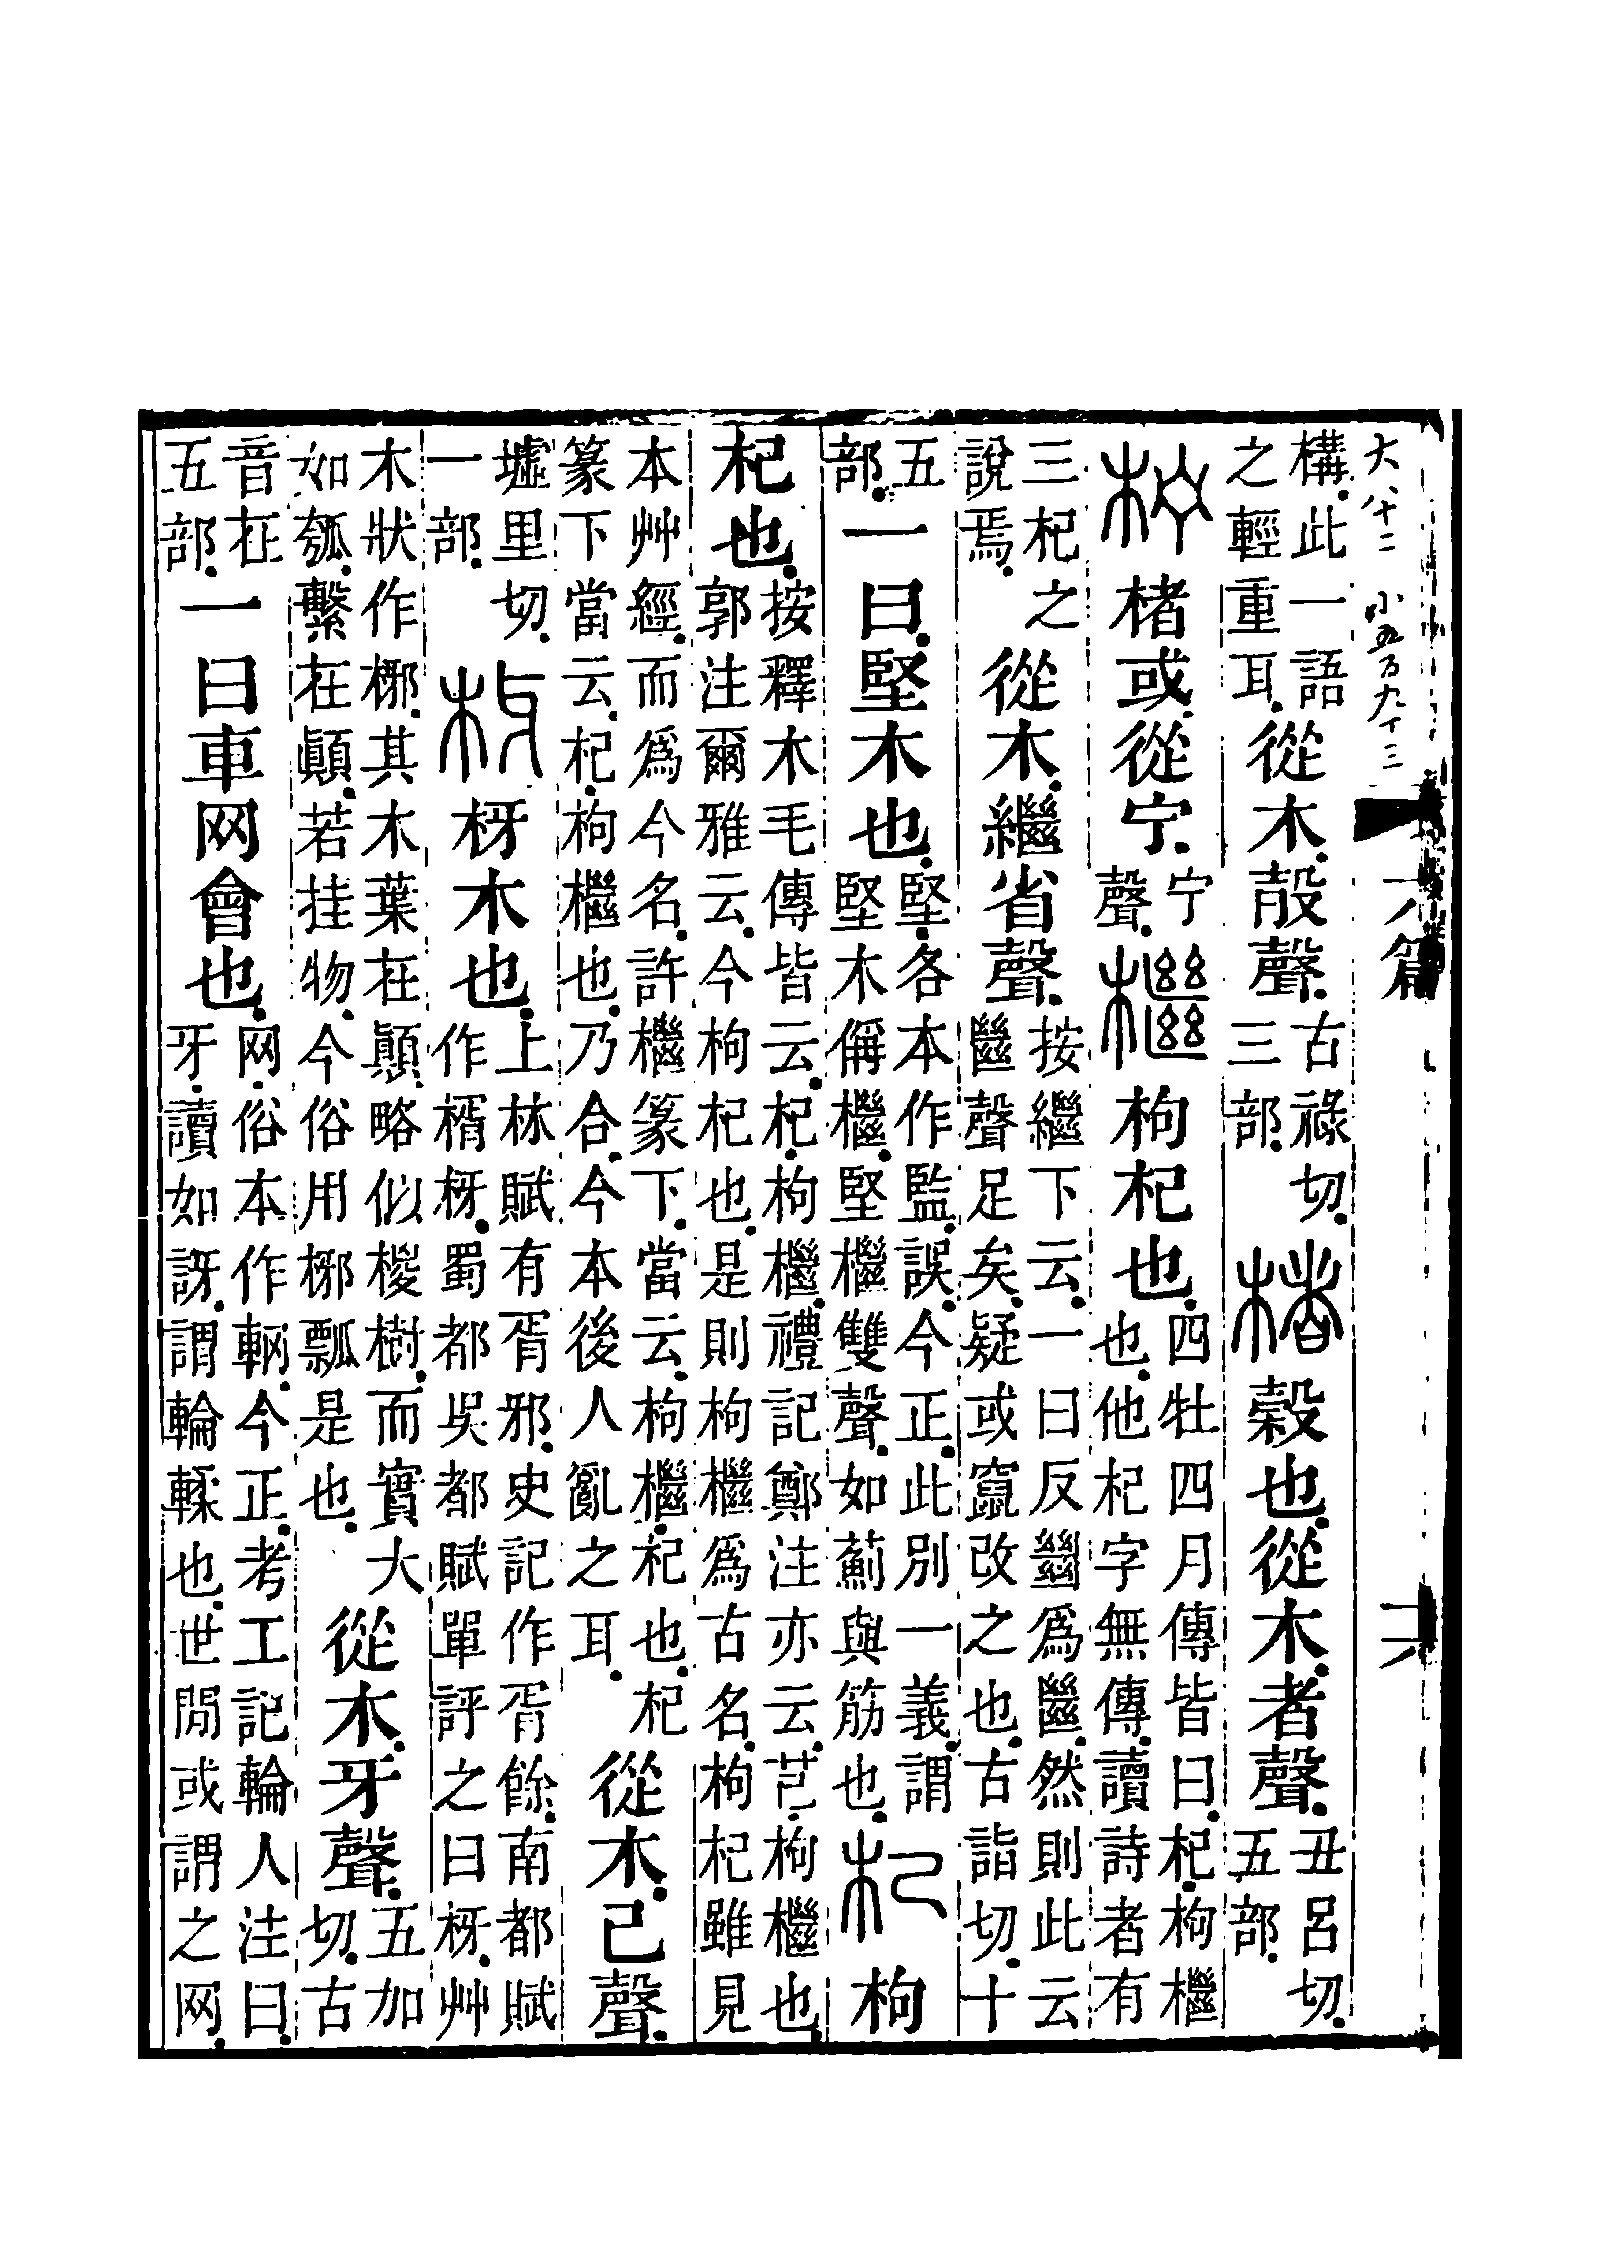 大、八十二 小五百九十三 六篇 十六
構。此一語之輕重耳。從木。㱿聲。古祿切。三部。楮榖也。從木。者聲。丑呂切。五部。
柠楮或從宁。宁聲。檵枸杞也。四牡四月傳皆曰。杞。枸檵也。他杞字無傳。讀詩者有
三杞之說焉。從木。繼省聲。按繼下云。一曰反𢇍爲㡭。然則此云㡭聲足矣。疑或竄改之也。古詣切。十
五部。一曰。堅木也。堅。各本作監。誤。今正。此別一義。謂堅木偁檵。堅檵雙聲。如薊與筋也。杞枸
杞也。按釋木毛傳皆云。杞。枸檵。禮記鄭注亦云。芑。枸檵也。郭注爾雅云。今枸杞也。是則枸檵爲古名。枸杞雖見
本艸經。而爲今名。許檵篆下。當云。枸檵。杞也。杞篆下當云。杞。枸檵也。乃合。今本後人亂之耳。從木。己聲。
墟里切。一部。枒枒木也。上林賦有胥邪。史記作胥餘。南都賦作楈枒。蜀都吳都賦單評之曰枒。艸
木狀作梛。其木葉在顚。略似椶樹。而實大如瓠。繫在顚。若挂物。今俗用梛瓢是也。從木。牙聲。五加切。古
音在五部。一曰車网會也。网。俗本作輞。今正。考工記輪人注曰。牙。讀如訝。謂輪輮也。世閒或謂之网。